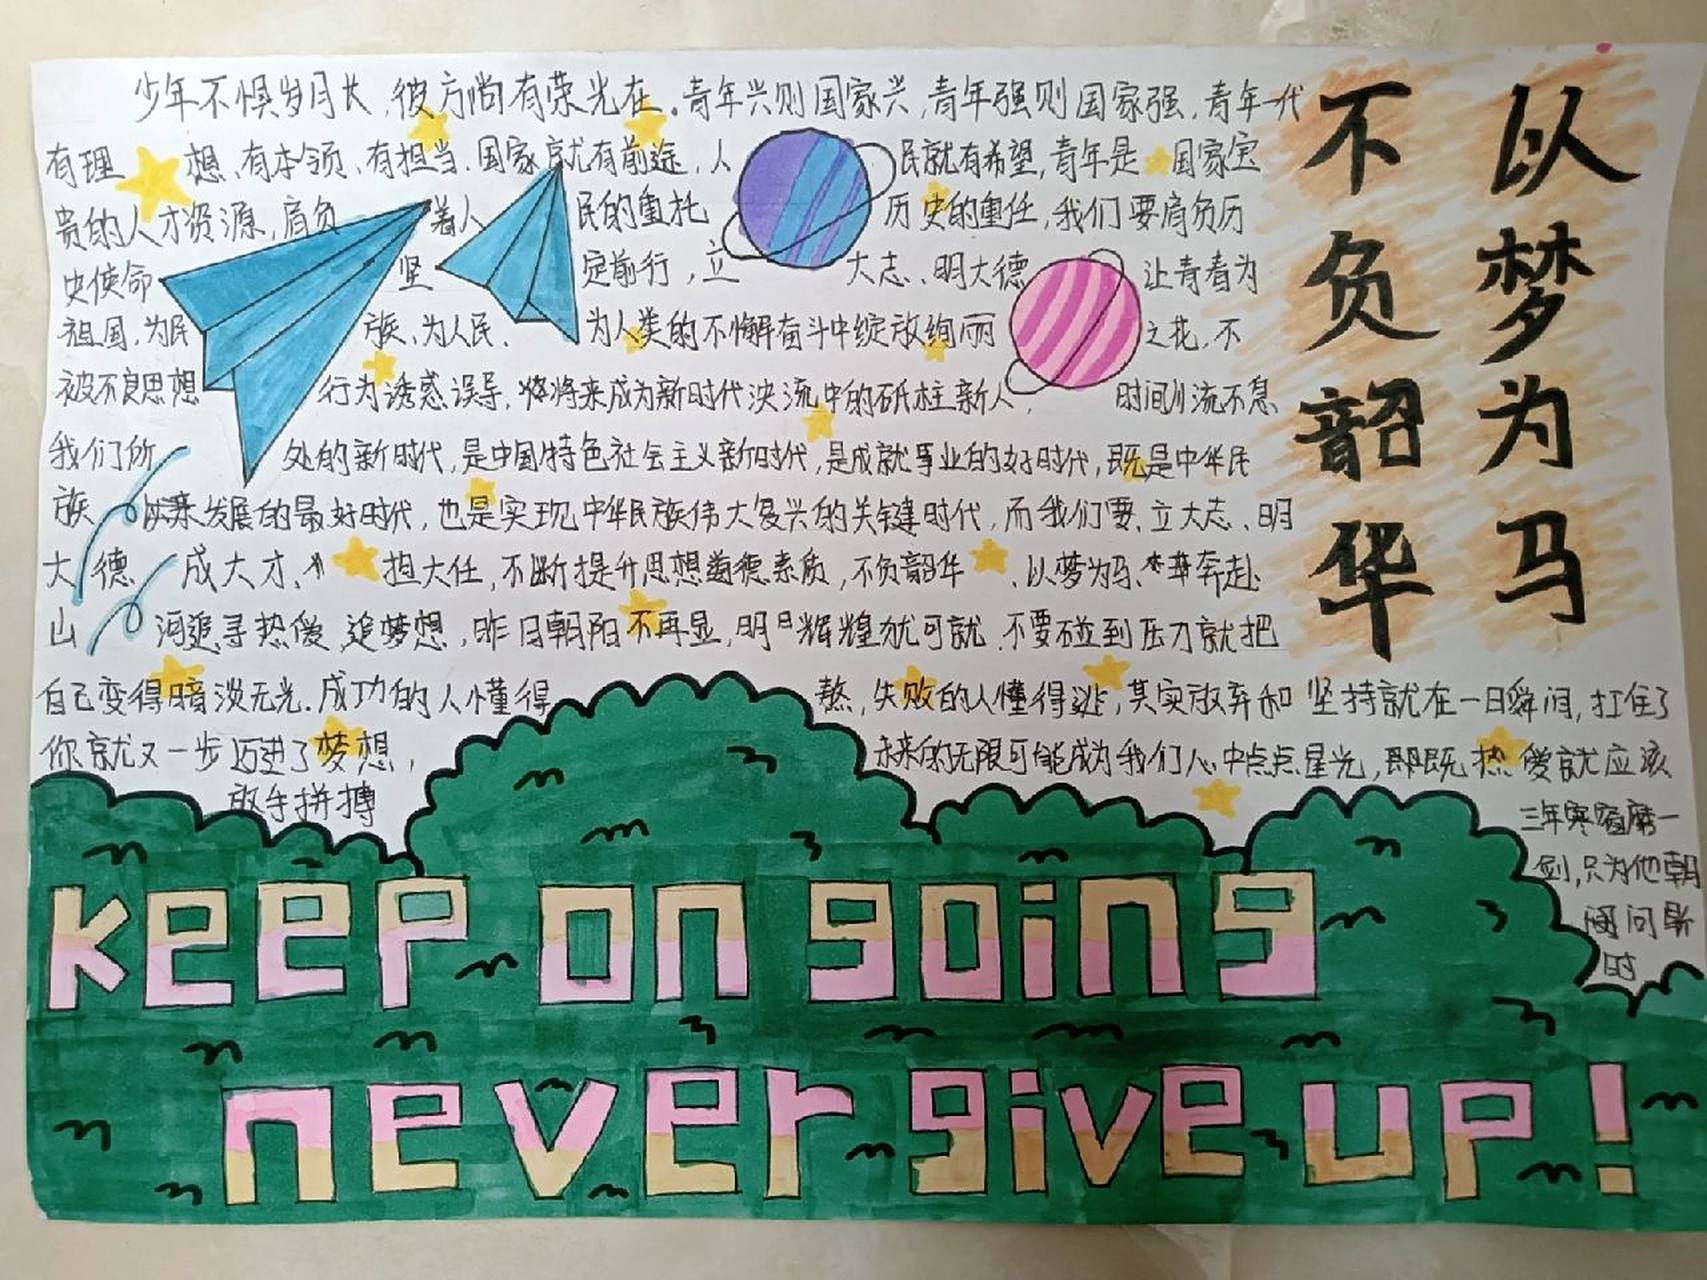 以梦为马
不负韶华
少年不惧岁月长,彼方尚有荣光在。青年兴则国家兴,青年强则国家强,青年一代
有理想、有本领、有担当、国家就有前途,人民就有希望,青年是国家宝
贵的人才资源,肩负着人民的重托历史的重任,我们要肩负历
史使命坚定前行,立大志、明大德让青春为
祖国,为民族、为人民、为人类的不懈奋斗中绽放绚丽之花,不
被不良思想行为诱惑误导,将来成为新时代泱流中的砥柱新人,时间川流不息
我们所处的新时代,是中国特色社会主义新时代,是成就事业的好时代,既是中华民
族以来发展的最好时代,也是实现中华民族伟大复兴的关键时代,而我们要、立大志、明
大德成大才、担大任,不断提升思想道德素质,不负韶华、以梦为马、奔赴
山河追寻热爱,追梦想,昨日朝阳不再显,明日辉煌犹可就、不要碰到压力就把
自己变得暗淡无光.成功的人懂得熬,失败的人懂得逃,其实放弃和坚持就在一日瞬间,扛住了
你就又一步迈进了梦想,未来的无限可能成为我们心中点点星光,即既热爱就应该
放手拼搏
三年寒窗磨一
剑,只为他朝
问鼎
时
keep on going
never give up!